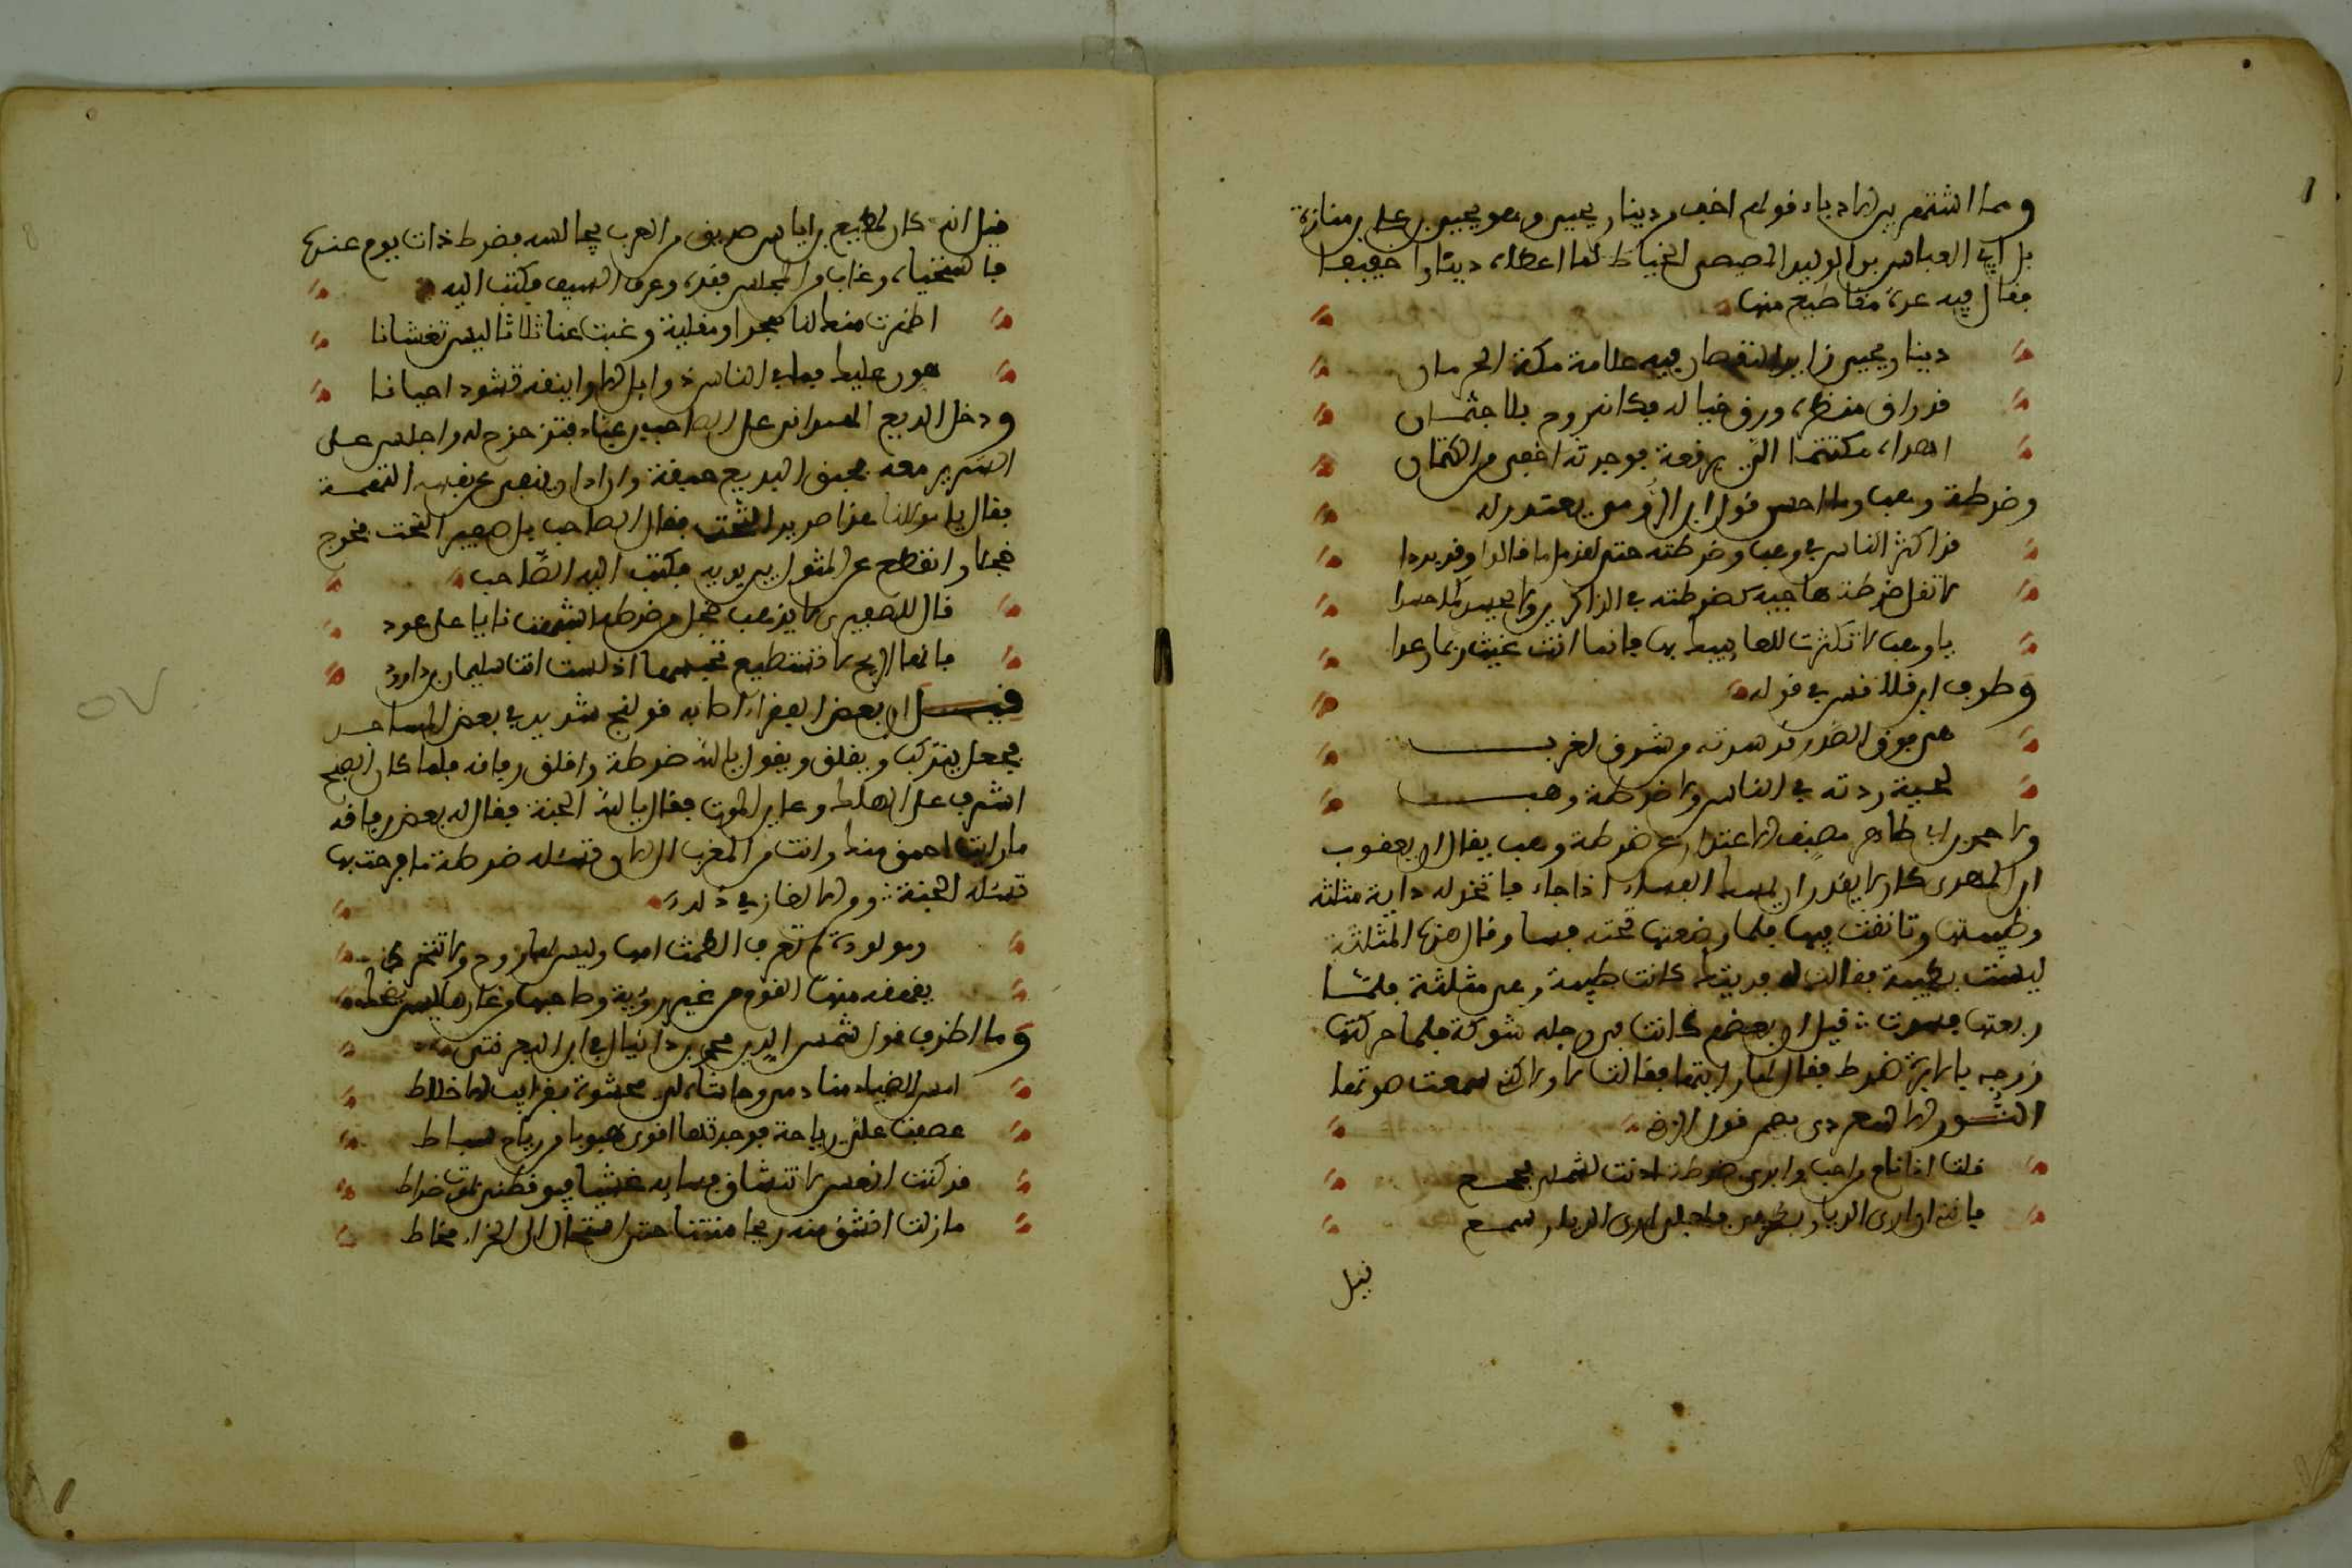 ومما اشتهر بين الادباء قولهم اخف من دينار يحيى وهو يحيى بن علي بن منارة
بن ابي العباس بن الوليد المصيصي الخياط لما اعطاه دينارا خفيفا
فقال فيه عدة مقاطيع منها
دينار يحيى زايد النقصان فيه علامة سكة الحرمان
قد راق منظره ورق خياله فكانه روح بلا جثمان
اهداه مكتتما الي برقعة فوجدته اخفى من الكتمان
وضرطة وهب وما احسن قول ابن الرومي يعتذر له
قد اكثر الناس في وهب وضرطته حتى لقد مل ما قالوا وقد بردا
لا تقل ضرطة هاجيه كضرطته في الذاكرين ولا يحسد كما حسدا
يا وهب لا تكترث للعايبيك بها فانما انت غيث ربما رعدا
وظرف ابن قلاقس في قوله
هي فوق الصدر قد سرته من شوق لغرب
لحية ردته في الناس ولا ضرطة وهب
ولاحمد بن ابي طاهر مصنف في الاعتذار عن ضرطة وهب يقال ان يعقوب
ابن المهدي كان لا يقدر ان يمسك الفساء اذا جاءه فاتخذ له داية مثلثة
وطيبتها وتانقت فيها فلما وضعتها تحته فسا وقال هذه المثلثة
ليست بطيبة فقالت له فديتك كانت طيبة وهي مثلثة فلما
ربعتها فسدت قيل ان بعضهم كانت في رجله شوكة فلما حركتها
زوجه بالابرة ضرط فقال لها رايتها فقالت لا ولكن سمعت صوتها
النور الاسعردي يضمن قول الرضي
قلت اذ نام من احب وابدى ضرطة اذنت لشملي بجمع
فاتني ان ارى الديار بطرفي فلعلي ارى الديار بسمعي
قيل
قيل انه كان لمطيع بن اياس صديق من العرب يجالسه فضرط ذات يوم عنده
فاستحيا وغاب عن المجلس ففقده وعرف السبب فكتب اليه
اظهرت منك لنا هجرا ومقلية وغبت عنا ثلاثا ليس تغشانا
هون عليك فما في الناس ذو ابل الا واينقه تشرد احيانا
ودخل البديع الهمداني على الصاحب بن عباد فتزحزح له واجلسه على
السرير معه فحبق البديع حبقة واراد ان ينفي عن نفسه التهمة
فقال يا مولانا هذا صرير التخت فقال الصاحب بل صفير التحت فخرج
خجلا وانقطع عن المثول بين يديه فكتب اليه الصاحب
قل للصفيري لا يذهب خجل من ضرطة اشبهت نايا على عود
فانها الريح لا تستطيع تحبسها اذ لست انت سليمان بن داود
قيل ان بعض الفقراء اصابه قولنج شديد في بعض المساجد
فجعل يتركب ويقلق ويقول يا الله ضرطة واقلق رفاقه فلما كان الصبح
اشرف على الهلاك وعاين الموت فقال يا الله الجنة فقال له بعض رفاقه
ما رايت احمق منك وانت من المغرب الى الان تسئله ضرطة ما فرحت بها
تسئله الجنة ومن الالغاز في ذلك
ومولودة لم تعرف الطمث امها وليس لها روح ولا تتحرك
يقهقه منها القوم من غير رؤية وصاحبها من عارها ليس يضحك
وما اظرف قول شمس الدين محمد بن دانيال في ابن البعرنتي
امسى الضياء منادمي وحاشاه لي محشوة بغرايب الاخلاط
عصفت علي رياحه فوجدتها اقوى هبوبا من رياح سباط
قد كنت انعس لا انتشاق فسائه غشيا فيوقظني بصوت ضراط
ما زلت انشق منه ريحا منتنا حتى استحال الى الخراء مخاط